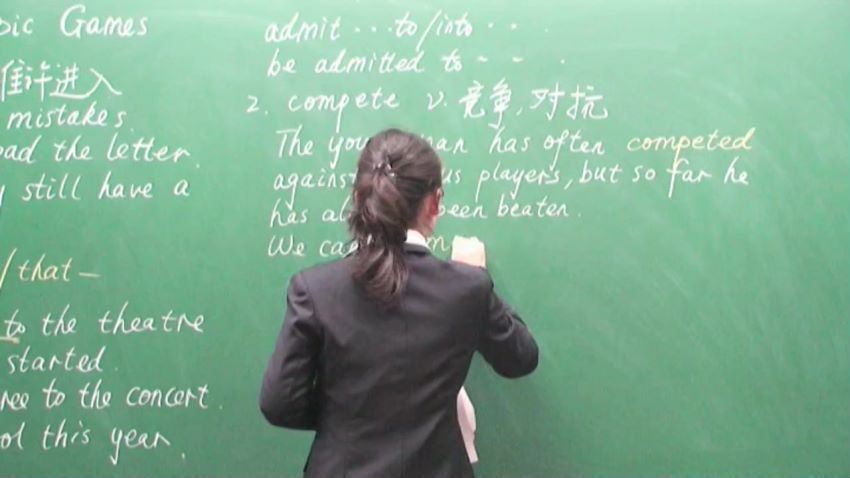 Games
准许进入
mistakes.
the letter.
still have a
/ that —
to the theatre
started.
to the concert.
this year.
admit ... to/into ...
be admitted to - - .
2. compete v. 竞争,对抗
The man has often competed
against players, but so far he
has been beaten.
We